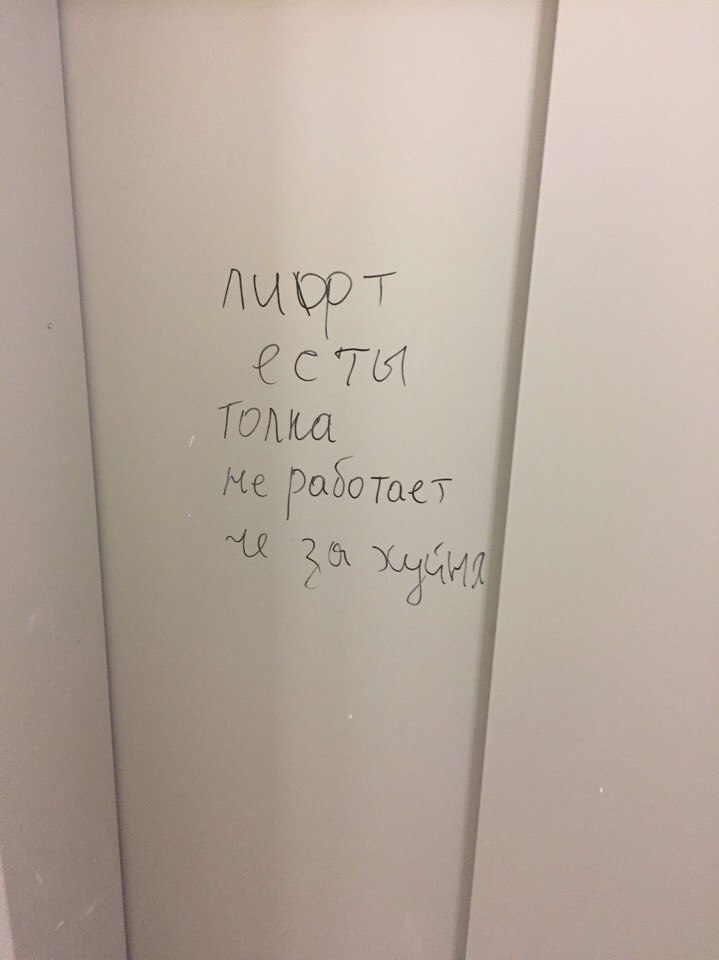 лифт
есты
толка
не работает
че за хуйня